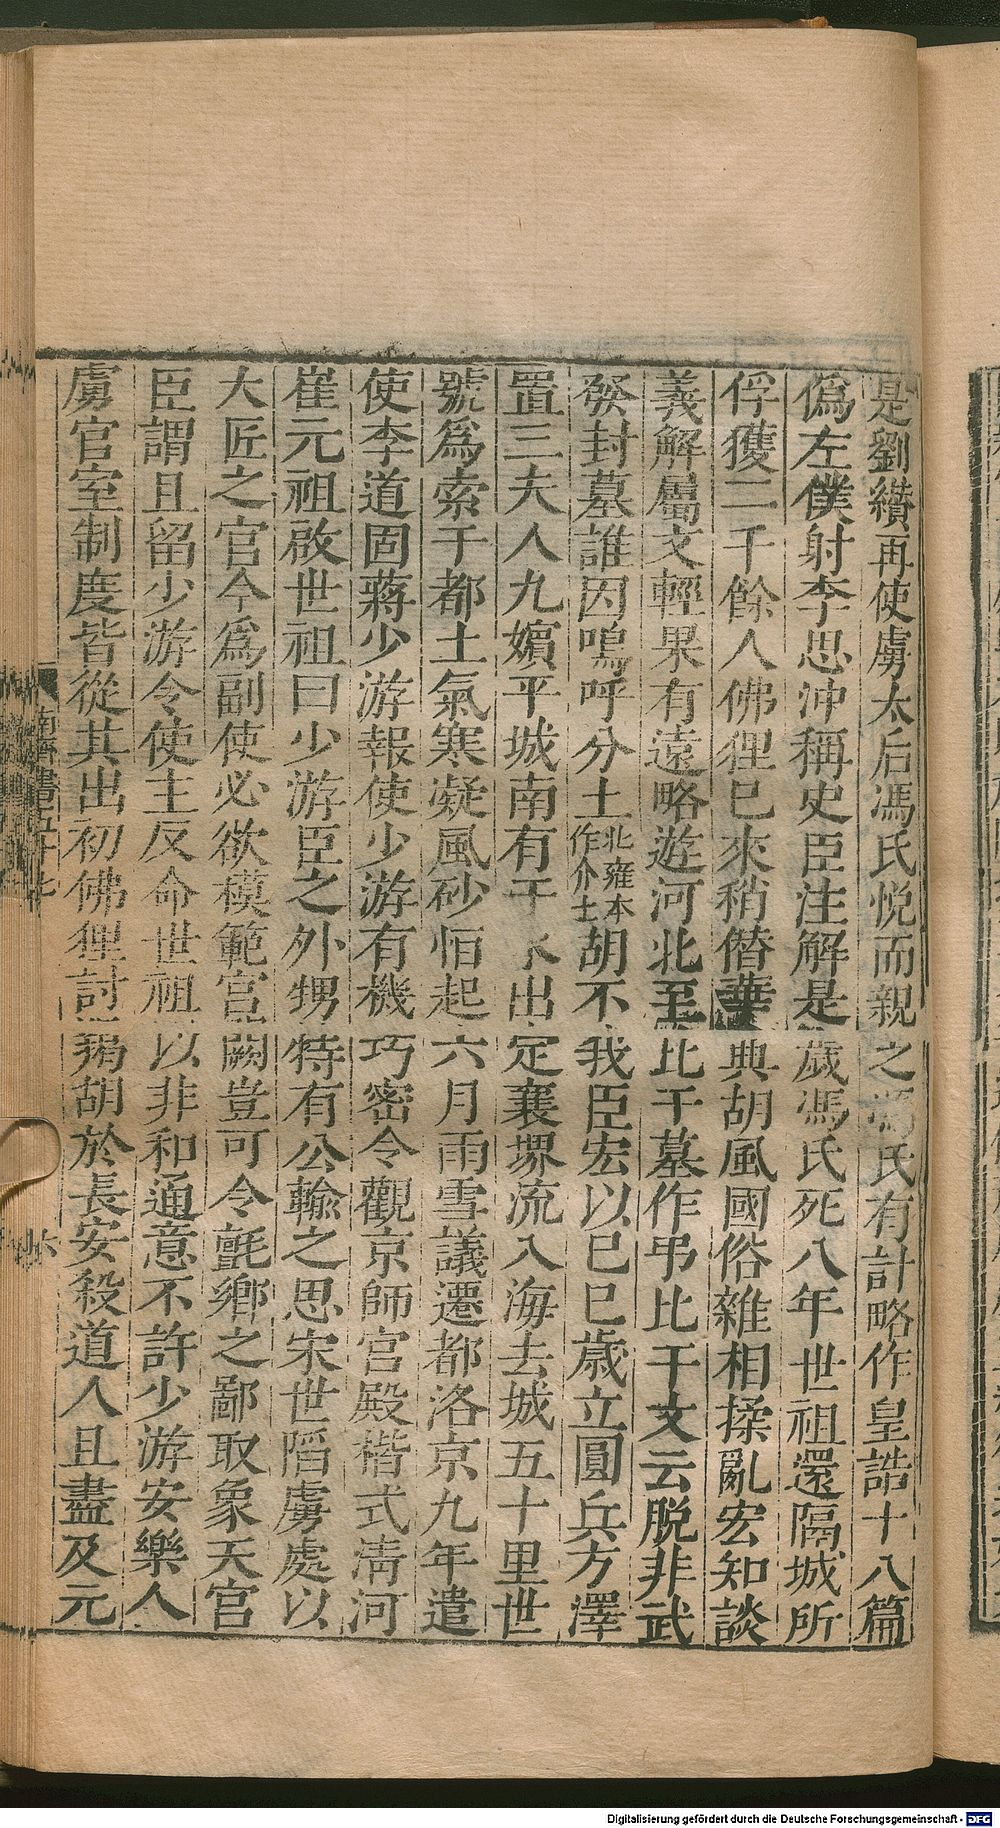 是劉纘再使虜太后馮氏悅而親之馮氏有計略作皇誥十八篇
偽左僕射李思沖稱史臣注解是歲馮氏死八年世祖還隔城所
俘獲二千餘人佛狸已來稍僭華典胡風國俗雜相揉亂宏知談
義解屬文輕果有遠略遊河北至比干墓作弔比干文云脫非武
發封墓誰因嗚呼分土
北雍本
作介士
胡不我臣宏以己巳歲立圓兵方澤
置三夫人九嬪平城南有干水出定襄堺流入海去城五十里世
號為索干都土氣寒凝風砂恒起六月雨雪議遷都洛京九年遣
使李道固蔣少游報使少游有機巧密令觀京師宮殿楷式清河
崔元祖啟世祖曰少游臣之外甥特有公輸之思宋世陷虜處以
大匠之官今為副使必欲模範宮闕豈可令氈鄉之鄙取象天宮
臣謂且留少游令使主反命世祖以非和通意不許少游安樂人
虜宮室制度皆從其出初佛狸討羯胡於長安殺道人且盡及元
南齊書五十七
六
Digitalisierung gefördert durch die Deutsche Forschungsgemeinschaft - DFG